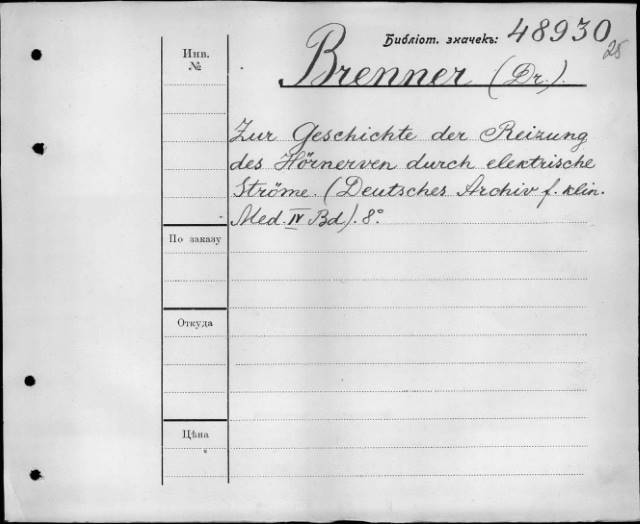 Библіот. значекъ: 48930
25
Инв.
№
Brenner (Dr.).
Zur Geschichte der Reizung
des Hörnerven durch elektrische
Ströme. (Deutsches Archiv f. klin.
Med. IV Bd). 8°
По заказу
Откуда
Цѣна